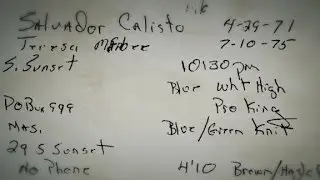 Salvador Calisto
4-29-71
Teresa
7-10-75
S. Sunset
10130 pm
Blue Wht High
Pro King
PO Box 999
Mas.
Blue/Green Knit
29 S Sunset
No Phone
4'10 Brown/Hazle